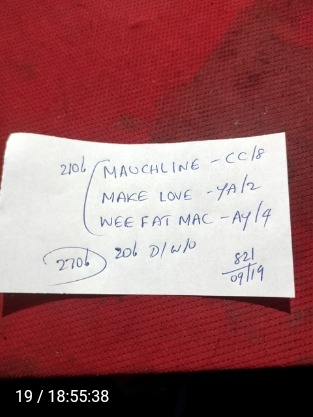 210b ( MAUCHLINE - CC/8
MAKE LOVE - YA/2
WEE FAT MAC - AY/4
270b 20b D/W/O
821
09/19
19 / 18:55:38